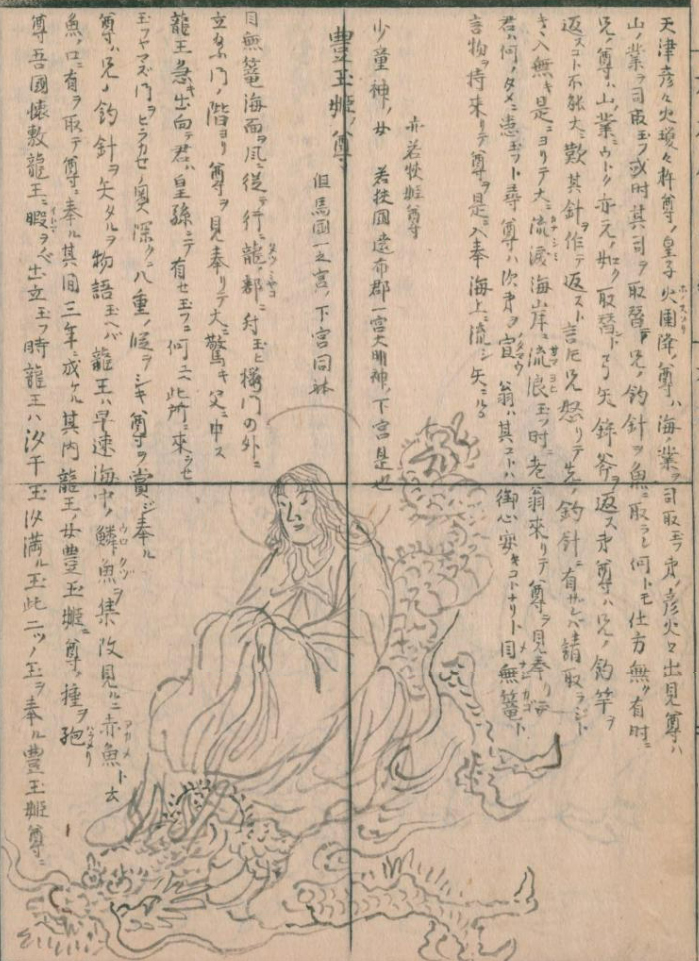 天津彦々火瓊々杵尊ノ皇子火闌降ノ尊ハ海ノ業ヲ司取玉フ弟ノ彦火々出見尊ハ
山ノ業ヲ司取玉フ或時其司ヲ取替テ兄ノ釣針ヲ魚ニ取ラレ何トモ仕方無ク有時ニ
兄ノ尊ハ山ノ業ニウトク亦元ノ如ク取替ト弓矢鉾ヲ返ス弟尊ハ兄ノ釣竿ヲ
返スコト不能大ニ歎其針ヲ作テ返スト言ヒ兄怒リテ先ノ釣針ニ有ザレバ請取ラジト
キヽ入無キ是ニヨリテ大ニ流涙海岸ニ流浪玉フ時ニ老翁來リテ尊ヲ見奉リ
君ハ何ノタメニ患玉フト尋尊ハ次第ヲ宣翁ハ其コトハ御心安キコトナリト目無篭ト
言物ヲ持來リテ尊ヲ是ニ入奉海上ニ流シ矢
亦若狭姫尊
少童神ノ女 若狭國遠布郡一宮大明神ノ下宮是也
豊玉姫ノ尊
但馬國一之宮ノ下宮同躰
目無篭海面ヲ風ニ從テ行龍ノ都ニ付玉ヒ楼門の外ニ
立門ノ階ヨリ尊ヲ見奉リテ大ニ驚キ父ニ申ス
龍王急キ出向テ君ハ皇孫ニテ有セ玉フニ何ニ此所ニ來ラセ
玉フヤマズ門ヲヒラカセ奥深クニ八重ノ疂ヲシキ尊ヲ賞ジ奉ル
尊ハ兄ノ釣針ヲ失タルヲ物語玉ヘバ龍王ハ早速海中ノ鱗魚ヲ集改見ルニ赤魚ト云
魚ノ口ニ有ヲ取テ尊ニ奉ル其間三年ニ成ケル其内龍王ノ女豊玉姫ニ尊ノ種ヲ孢
尊吾國懐敷龍王ニ暇ヲベ出立玉フ時龍王ハ汐干玉汐満ル玉此二ツノ玉ヲ奉ル豊玉姫尊ニ